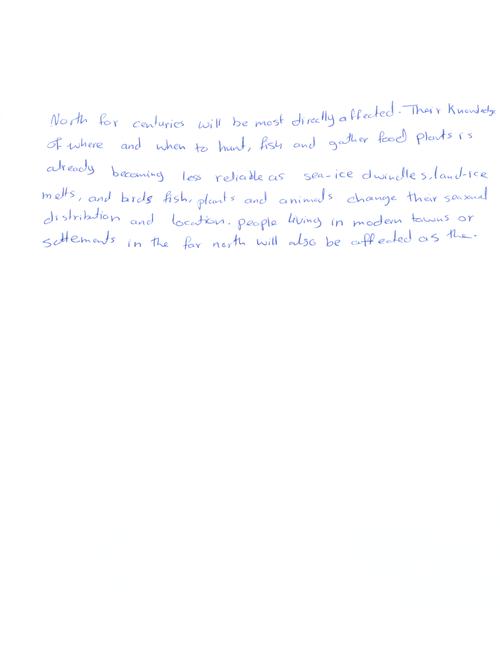 North for centuries will be most directly affected. Their Knowledge
of where and when to hunt, fish and gather food plants is
already becoming less reliable as sea-ice dwindles, land-ice
melts, and birds fish, plants and animals change their seasonal
distribution and location. people living in modern towns or
settlements in the far north will also be affected as the.